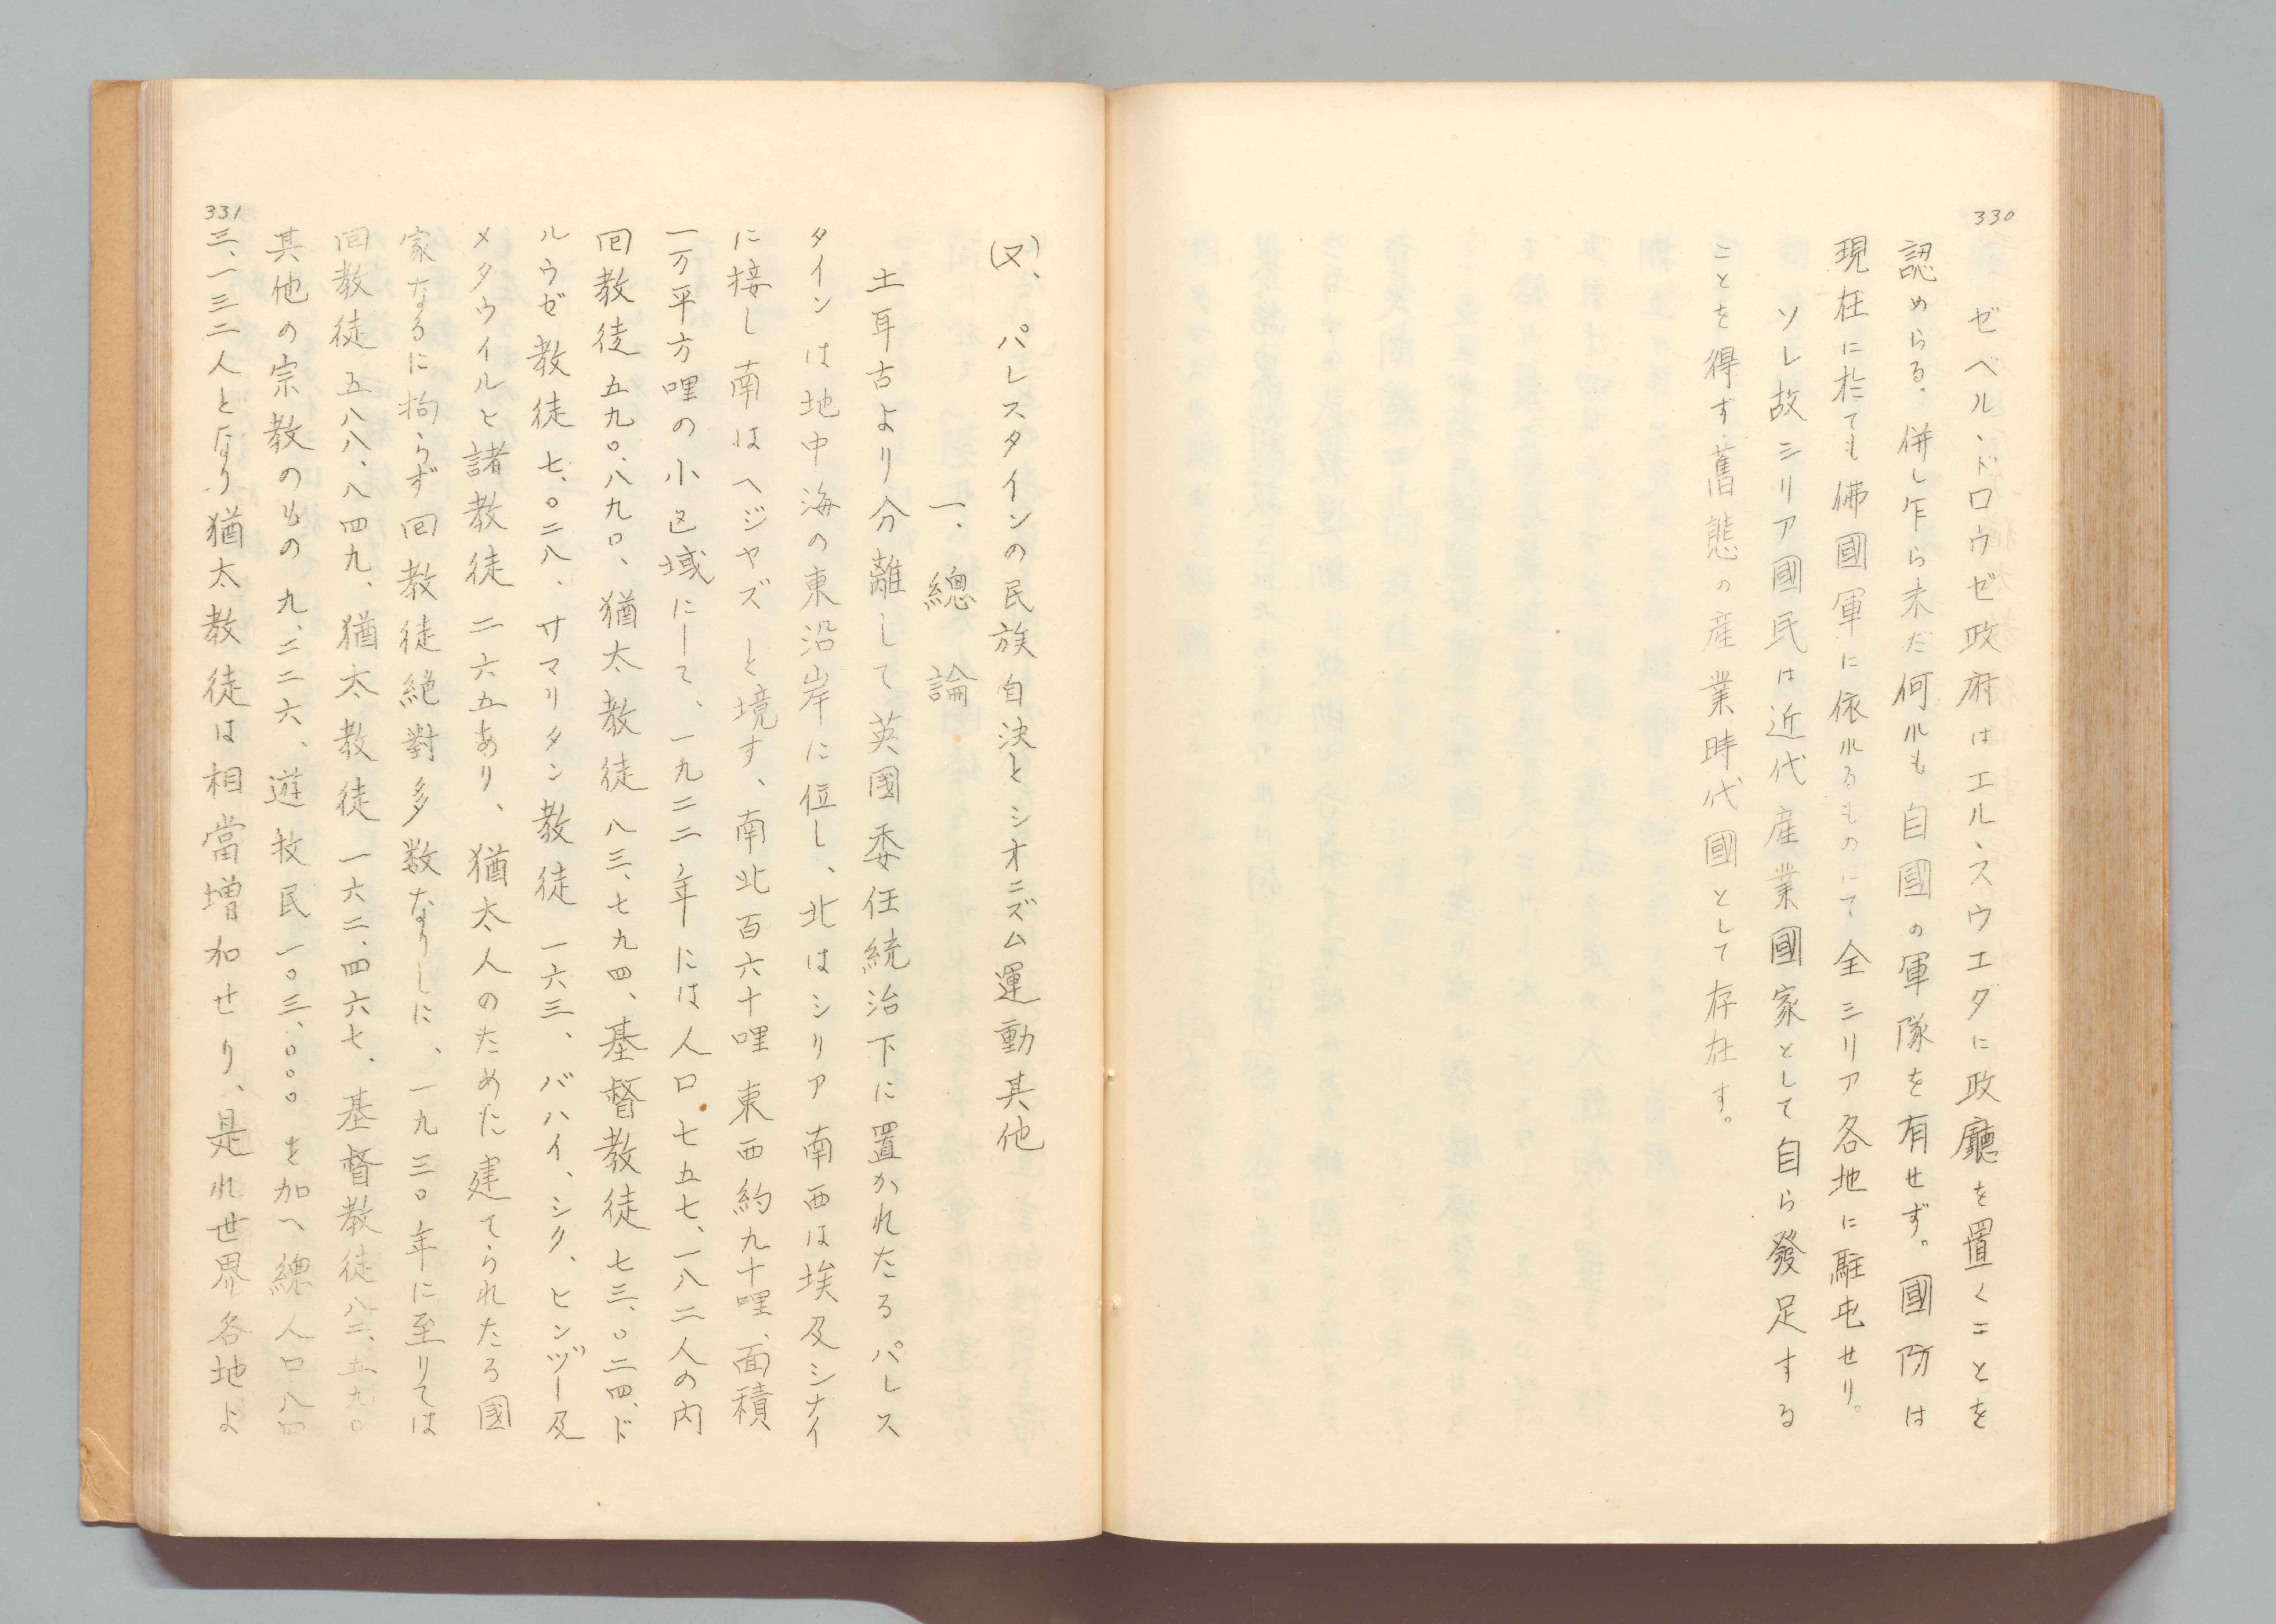 330
ゼベル、ドロウゼ政府はエル、スウエダに政廳を置くことを
認めらる。併し乍ら未だ何れも自國の軍隊を有せず。國防は
現在に於ても佛國軍に依れるものにて全シリア各地に駐屯せり。
ソレ故シリア國民は近代産業國家として自ら發足する
ことを得ず舊態の産業時代國として存在す。
331
(又)、パレスタインの民族自決とシオニズム運動其他
一、總論
土耳古より分離して英國委任統治下に置かれたるパレス
タインは地中海の東沿岸に位し、北はシリア南西は埃及シナイ
に接し南はヘジヤズと境す、南北百六十哩東西約九十哩、面積
一万平方哩の小区域にして、一九二二年には人口七五七、一八二人の内
回教徒五九〇、八九〇、猶太教徒八三、七九四、基督教徒七三、〇二四、ド
ルウゼ教徒七、〇二八、サマリタン教徒一六三、バハイ、シク、ヒンヅー及
メタウイルと諸教徒二六五あり、猶太人のためめた建てられたる國
家なるに拘らず回教徒絶對多数なりしに、一九三〇年に至りては
回教徒五八八、八四九、猶太教徒一六二、四六七、基督教徒八二、五九〇
其他の宗教のもの九、二二六、遊牧民一〇三、〇〇〇を加へ總人口八四
三、一三二人となり猶太教徒は相當増加せり、是れ世界各地よ